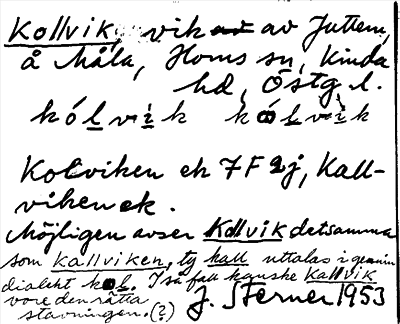 Kollvik, vik av Juttern,
å Måla, Horns sn, Kinda
hd, Östg. l.
kólvik kólvik
Kolviken ek 7F2j, Kall-
viken ek.
Möjligen avser Kollvik detsamma
som Kallviken, ty kall uttalas i
dialekt kol. I så fall kanske Kallvik
vore den rätta
stavningen. (?) J. Sterner 1953